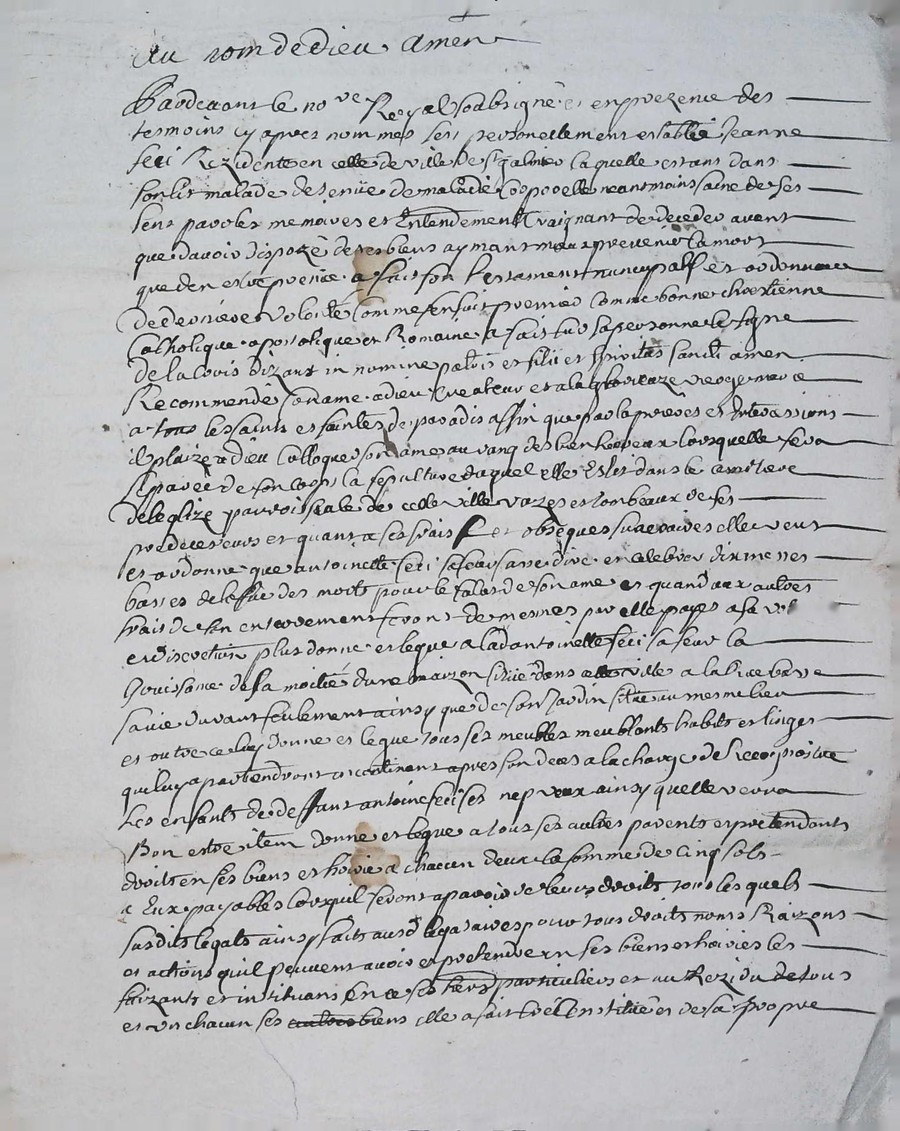 Au nom de dieu Amen
Pardevant le no.re Royal soubsigné et en prezence des
tesmoins cy apres nommés sest personellement establie Jeanne
feci Rezidente en celle de ville de st galmier laquelle estant dans
son lit malade detenüe de maladie Corporelle neantmoins saine de ses
sens parolles memoires et Entendement Craignant de deceder avant
que davoir dispozé de ses biens aymant mieux prevenir la mort
que den estre prevenüe a fait son testament nuncupatif et ordonnance
de derniere volonté Comme sensuit premier Comme bonne chrestienne
Catholique apostolique et Romaine a fait sur sa personne le signe
de la Croix dizant in nomine patris et filii et spiritus sancti amen
Recommendé son ame a dieu Createur et a la glorieuze vierge marie
a tous les saints et saintes de paradis affin que par la prieres et Intercessions
il plaize a dieu Colloquer son ame au rang des bienheureux lorsquelle sera
separée de son corps la sepulture duquel elle Eslit dans le cimitiere
de leglize parroissiale de celle ville vazes et tombeaux de ses
predecesseurs et quant a ses frais et obseques funeraires elle veut
et ordonne que antoinette feci sa seur fasse dire et celebrer dix messes
basses de loffice des morts pour le salut de son ame et quand aux aultres
frais de son enterrement seront de mesmes par elle payés a sa vol.
et discretion plus donne et legue a lad antoinette feci sa seur la
Jouissance de la moitié dune maizon size dans celle ville a la rue basse
sa vie durant seulement ainsy que de son Jardin situé au mesme lieu
et outre ce luy donne et legue tous ses meubles meublants habits et linges
quil luy apartendront incontinant apres son deces a la charge de
les enfants de deffunt antoine feci ses nepveux ainsy quelle verra
Bon estre item donne et legue a tous ses aultres parents et pretendants
droits en ses biens et hoirie a chacun deux la somme de cinq sols
a Eux payables lorsquil seront aparoir de leurs droits tous lesquels
susdits legats ainsy faits ausd legataires pour tous droits noms Raizons
et actions quil peuvent avoir et pretendre en ses biens et hoiries les
faizants et instituans En ce ses hers particuliers et au Rezidu de tous
et un chacun ses biens elle a fait Créé Institué et de sa propre